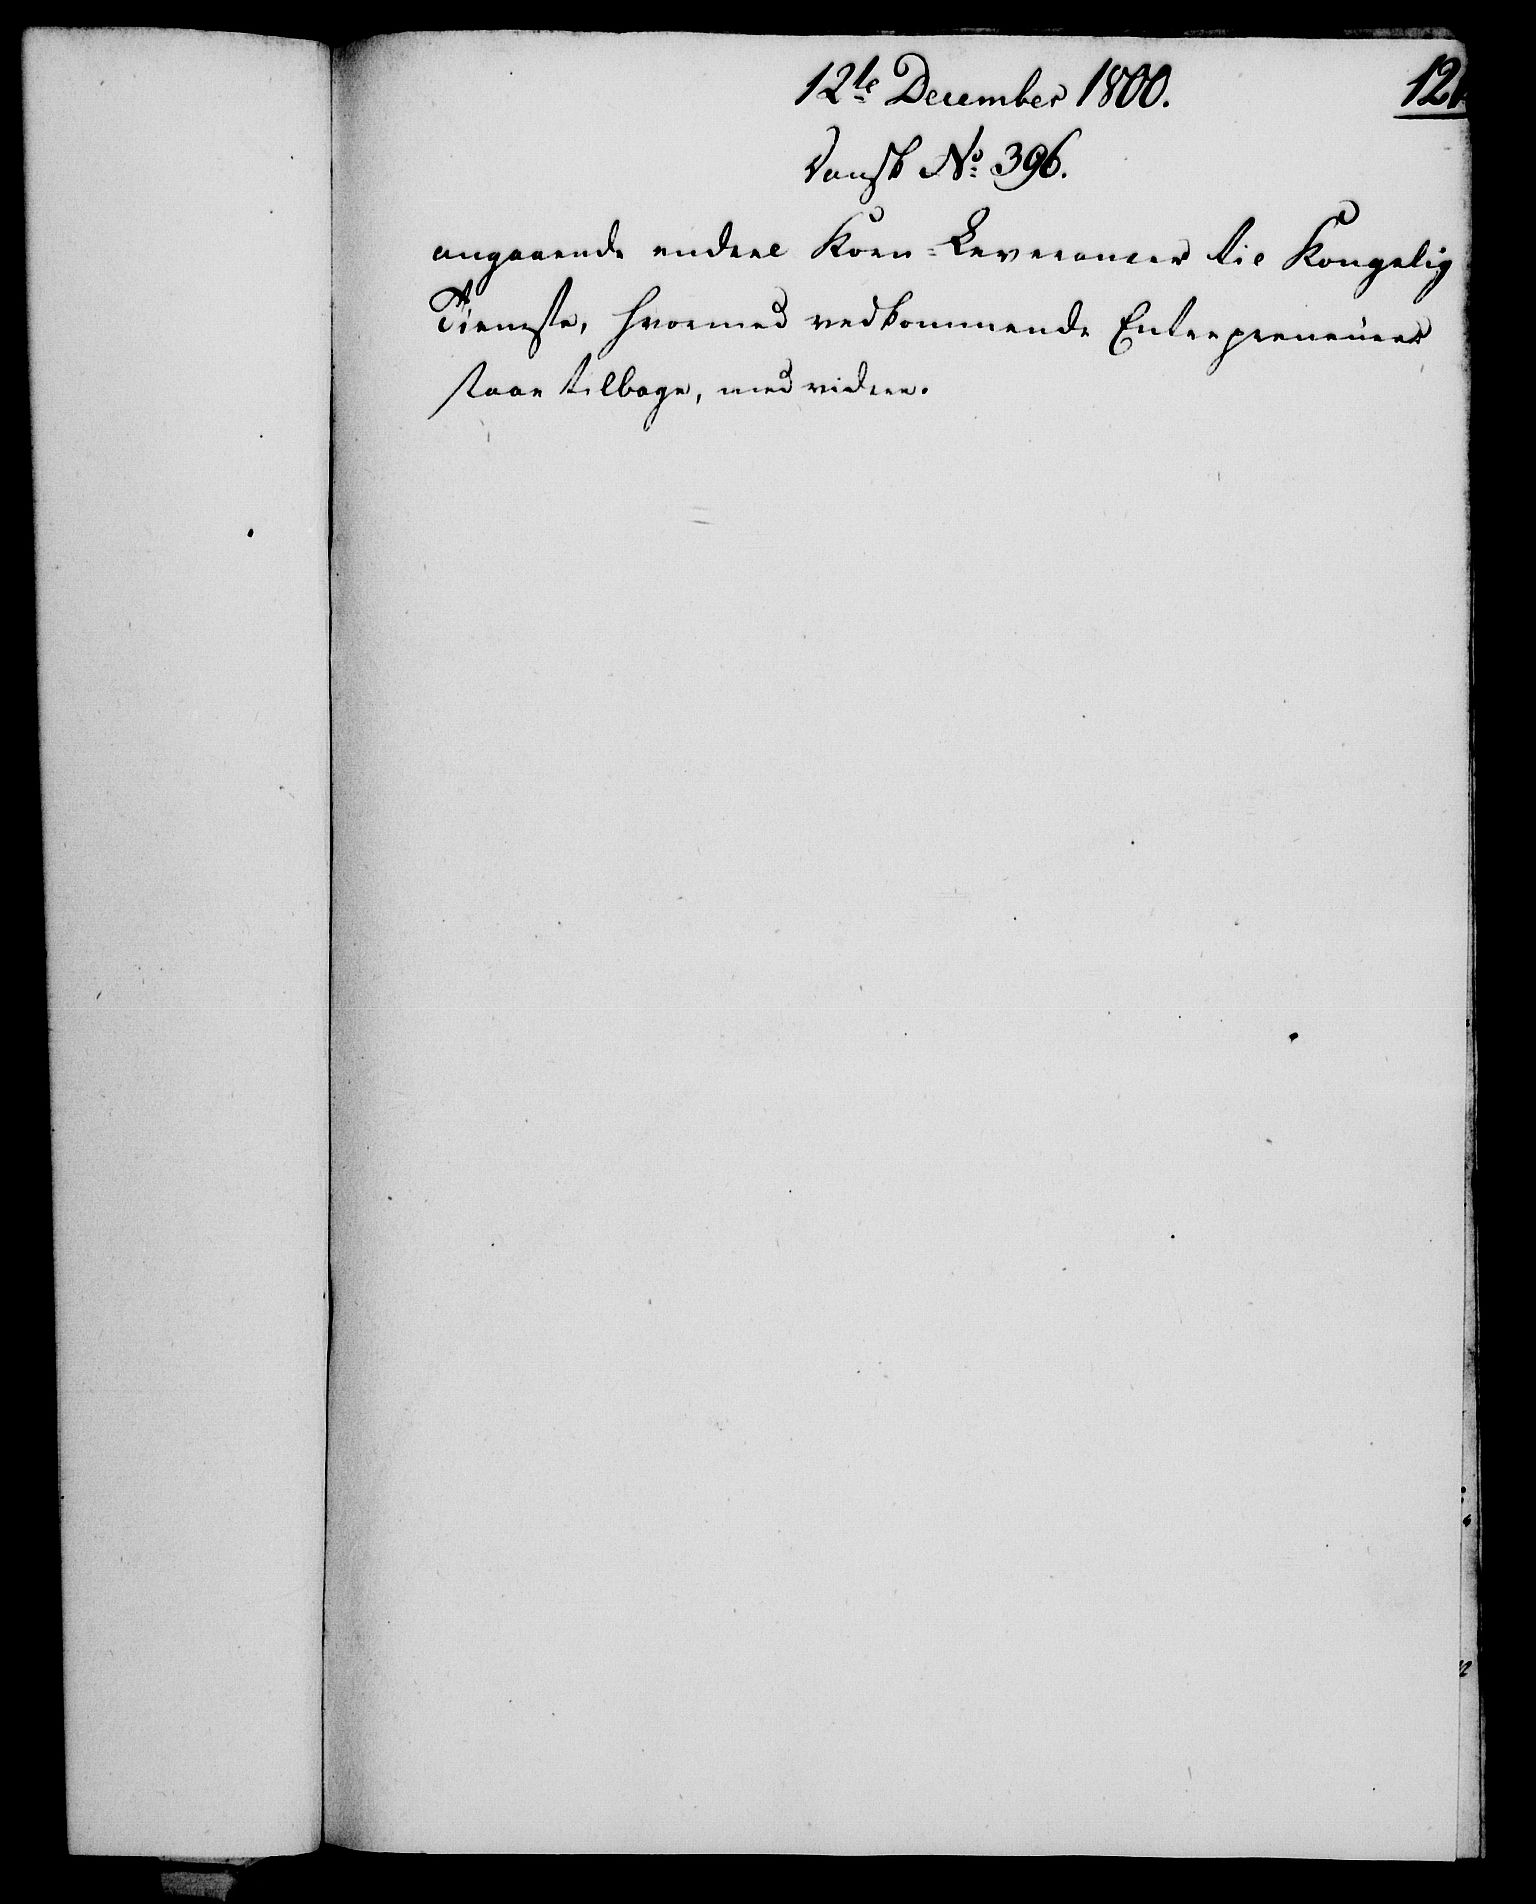 12te December 1800.
Dansk No: 396.
angaaende endeel Korn-Leverancer til Kongelig
Tieneste, hvormed vedkommende Entrepreneurer
staae tilbage, med videre.